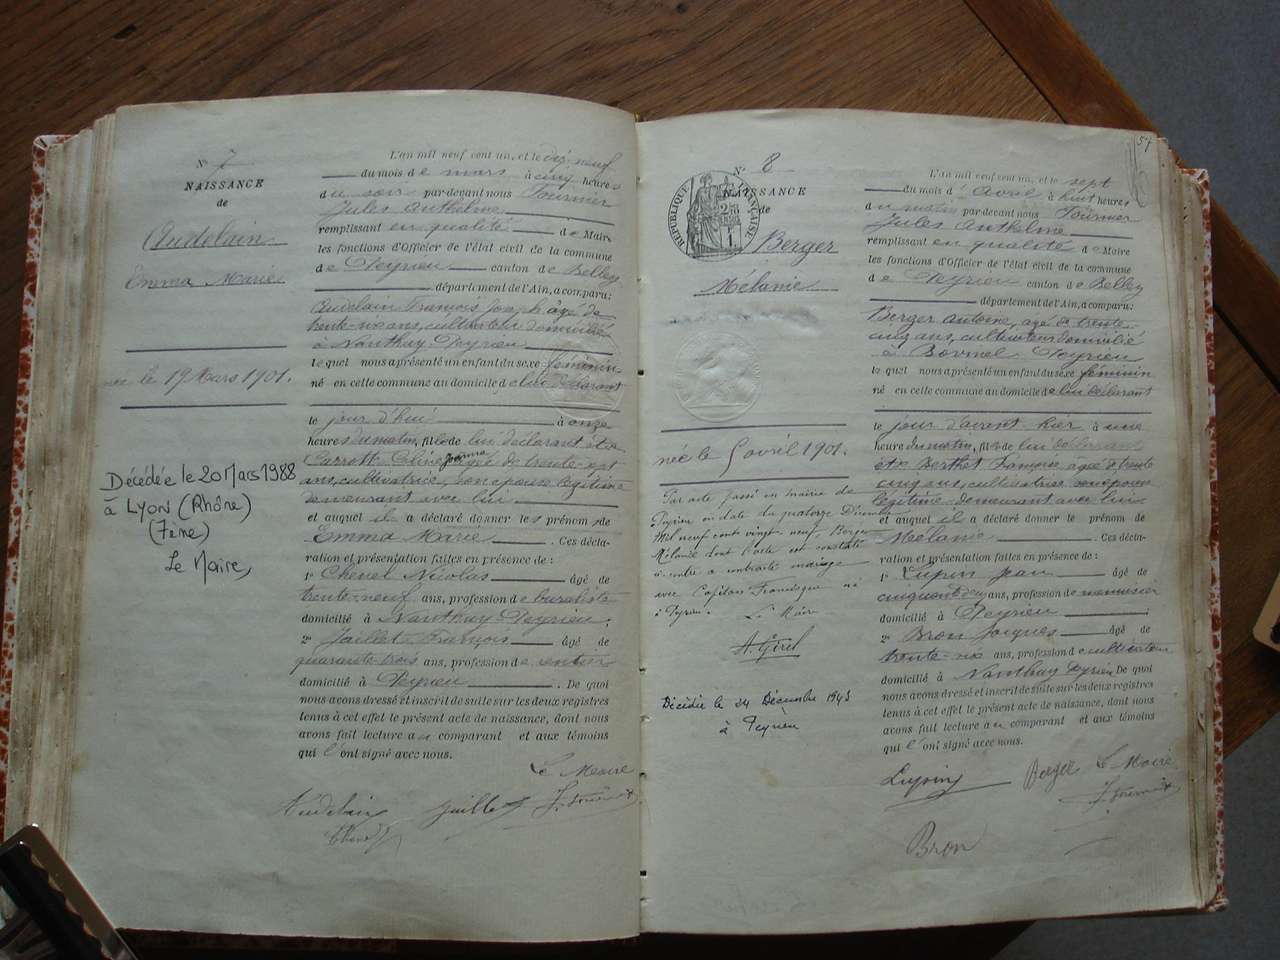 N° 7
NAISSANCE
de
Audelain
Emma Marie
née le 19 Mars 1901.
Décédée le 20 Mars 1988
à LYON (Rhône)
(7ème)
Le Maire,
L'an mil neuf cent un, et le dix-neuf
du mois de mars à cinq heures
du soir par-devant nous Fournier
Jules Anthelme
remplissant en qualité de Maire
les fonctions d'Officier de l'état civil de la commune
de Peyrieu canton de Belley
département de l'Ain, a comparu:
Audelain François Joseph âgé de
trente-six ans, cultivateur domicilié
à Nanthuy Peyrieu
lequel nous a présenté un enfant du sexe féminin
né en cette commune au domicile de lui déclarant
le jour d'hui à onze
heures du matin, fille de lui déclarant et de
Céline Jeanne âgée de trente-sept
ans, cultivatrice, son épouse légitime
demeurant avec lui
et auquel il a déclaré donner les prénoms de
Emma Marie . Ces décla-
ration et présentation faites en présence de:
1° Chenel Nicolas âgé de
trente-neuf ans, profession de buraliste
domicilié à Nanthuy Peyrieu.
2° Jaillet François âgé de
quarante-trois ans, profession de rentier
domicilié à Peyrieu . De quoi
nous avons dressé et inscrit de suite sur les deux registres
tenus à cet effet le présent acte de naissance, dont nous
avons fait lecture au comparant et aux témoins
qui l'ont signé avec nous.
Le Maire
Audelain Jaillet J. Fournier
Chenel
57
N° 8
NAISSANCE
de
REPUBLIQUE FRANÇAISE
Berger
Mélanie
née le 5 avril 1901.
Par acte passé en mairie de
Peyrieu en date du quatorze Décembre
Mil neuf cent vingt neuf, Berger
Mélanie dont l'acte est constaté
ci-contre a contracté mariage
avec Capitan Francisque né
à Peyrieu. Le Maire
A. Girel
Décédée le 24 Décembre 1945
à Peyrieu
L'an mil neuf cent un, et le sept
du mois d'avril à huit heures
du matin par-devant nous Fournier
Jules Anthelme
remplissant en qualité de Maire
les fonctions d'Officier de l'état civil de la commune
de Peyrieu canton de Belley
département de l'Ain, a comparu:
Berger Antoine, âgé de trente-
cinq ans, cultivateur domicilié
à Peyrieu
lequel nous a présenté un enfant du sexe féminin
né en cette commune au domicile de lui déclarant
le jour d'avant hier à une
heure du matin, fille de lui déclarant
et de Berthet Françoise, âgée de trente
cinq ans, cultivatrice son épouse
légitime demeurant avec lui
et auquel il a déclaré donner le prénom de
Mélanie . Ces décla-
ration et présentation faites en présence de:
1° Lupin Jean âgé de
cinquante deux ans, profession de menuisier
domicilié à Peyrieu .
2° Bron Jacques âgé de
trente-six ans, profession de cultivateur
domicilié à Nanthuy Peyrieu De quoi
nous avons dressé et inscrit de suite sur les deux registres
tenus à cet effet le présent acte de naissance, dont nous
avons fait lecture au comparant et aux témoins
qui l'ont signé avec nous.
Lupin Berger Le Maire
J. Fournier
Bron